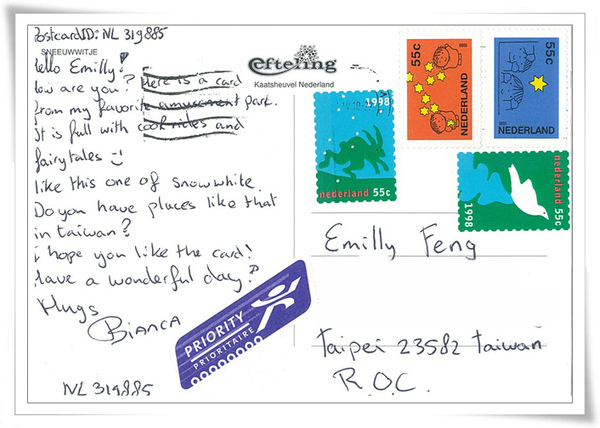 PostcardID: NL 319885
SNEEUWWITJE
Hello Emilly!
How are you? Here is a card
from my favorite amusement park.
It is full with cool rides and
fairytales
like this one of snowwhite.
Do you have places like that
in taiwan?
i hope you like the card!
Have a wonderful day?
Hugs
Bianca
NL 319885
efteling
Kaatsheuvel Nederland
55c
NEDERLAND
1995
55c
NEDERLAND
1995
1998
nederland 55c
nederland 55c
1998
Emilly Feng
Taipei 23582 taiwan
R.O.C.
PRIORITY
PRIORITAIRE